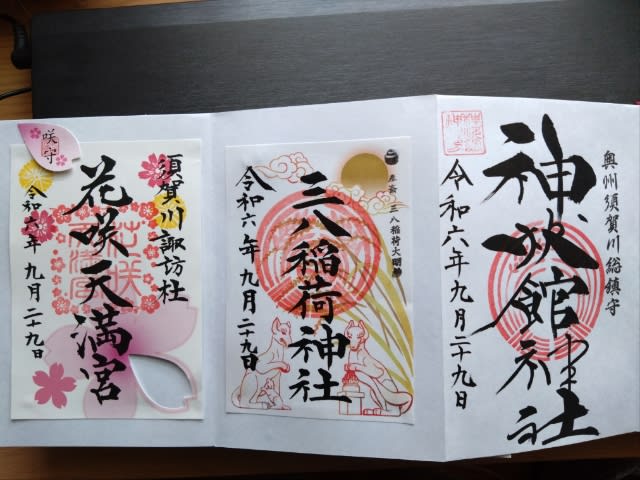 奥州須賀川総鎮守
神炊館神社
令和六年九月二十九日
奉斎 三八稲荷大明神
三八稲荷神社
令和六年九月二十九日
須賀川諏訪社
花咲天満宮
令和六年九月二十九日
咲守
花咲
天満宮